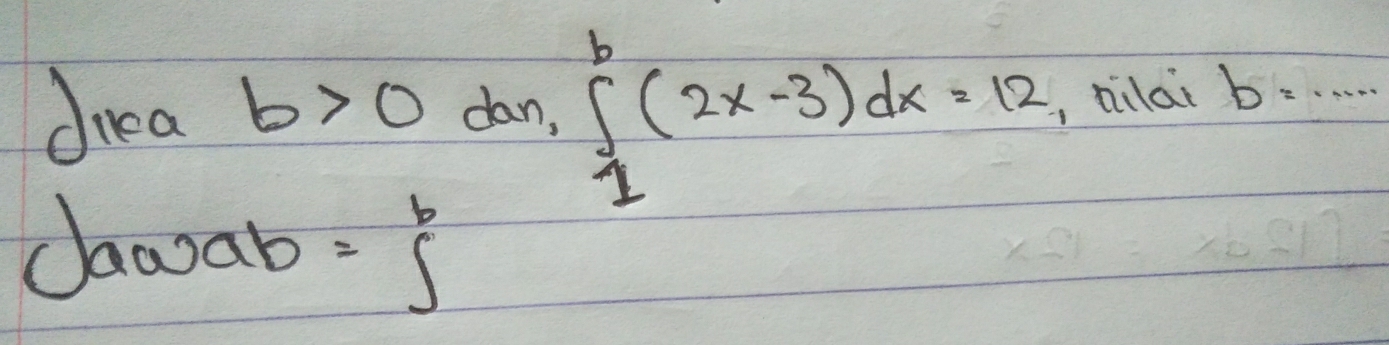 Jika b > 0 dan, ∫₁ᵇ (2x-3) dx = 12, nilai b = .....
Jawab = ∫ᵇ